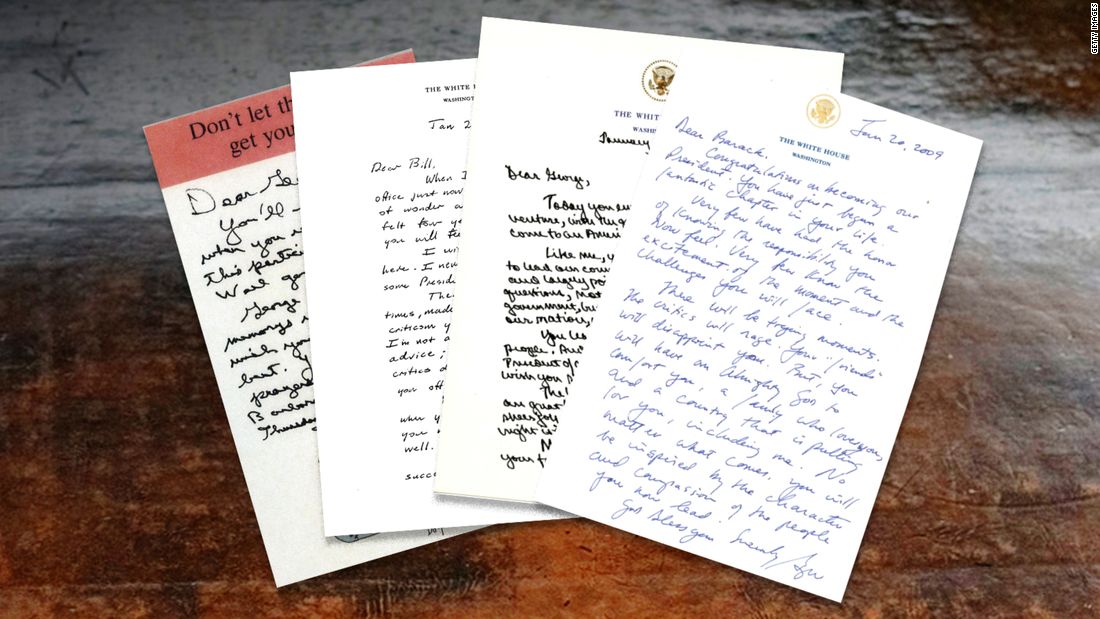 Don't let th
get you
Dear Ge
You'll
when you
this partic
Wall
George
memorys
wish you
but.
prayers
Barbar
Thursday
THE WHITE H
WASHINGTO
Jan 2
Dear Bill,
When I
office just now
of wonder a
felt four ye
you will fe
I wi
here. I nev
some Presid
The
times, made
criticism y
I'm not a
advice;
critics d
you off
when y
you
well.
succ
THE WHIT
WASHI
January
Dear George,
Today you em
venture, with the g
come to an Ameri
Like me, y
to lead our coun
and largely po
questions, not
government, bu
our nation,
You le
people. An
President of
wish you
The
are great
sheer joy
right is
N
your f
THE WHITE HOUSE
WASHINGTON
Jan 20, 2009
Dear Barack,
Congratulations on becoming our
President. You have just begun a
fantastic chapter in your life.
Very few have had the honor
of knowing the responsibility you
now feel. Very few know the
excitement of the moment and the
challenges you will face.
There will be trying moments.
The critics will rage. Your "friends"
will disappoint you. But, you
will have an Almighty God to
comfort you, a family who loves you,
and a country that is pulling
for you, including me. No
matter what comes, you will
be inspired by the character
and compassion of the people
you now lead.
God bless you
Sincerely,
GETTY IMAGES